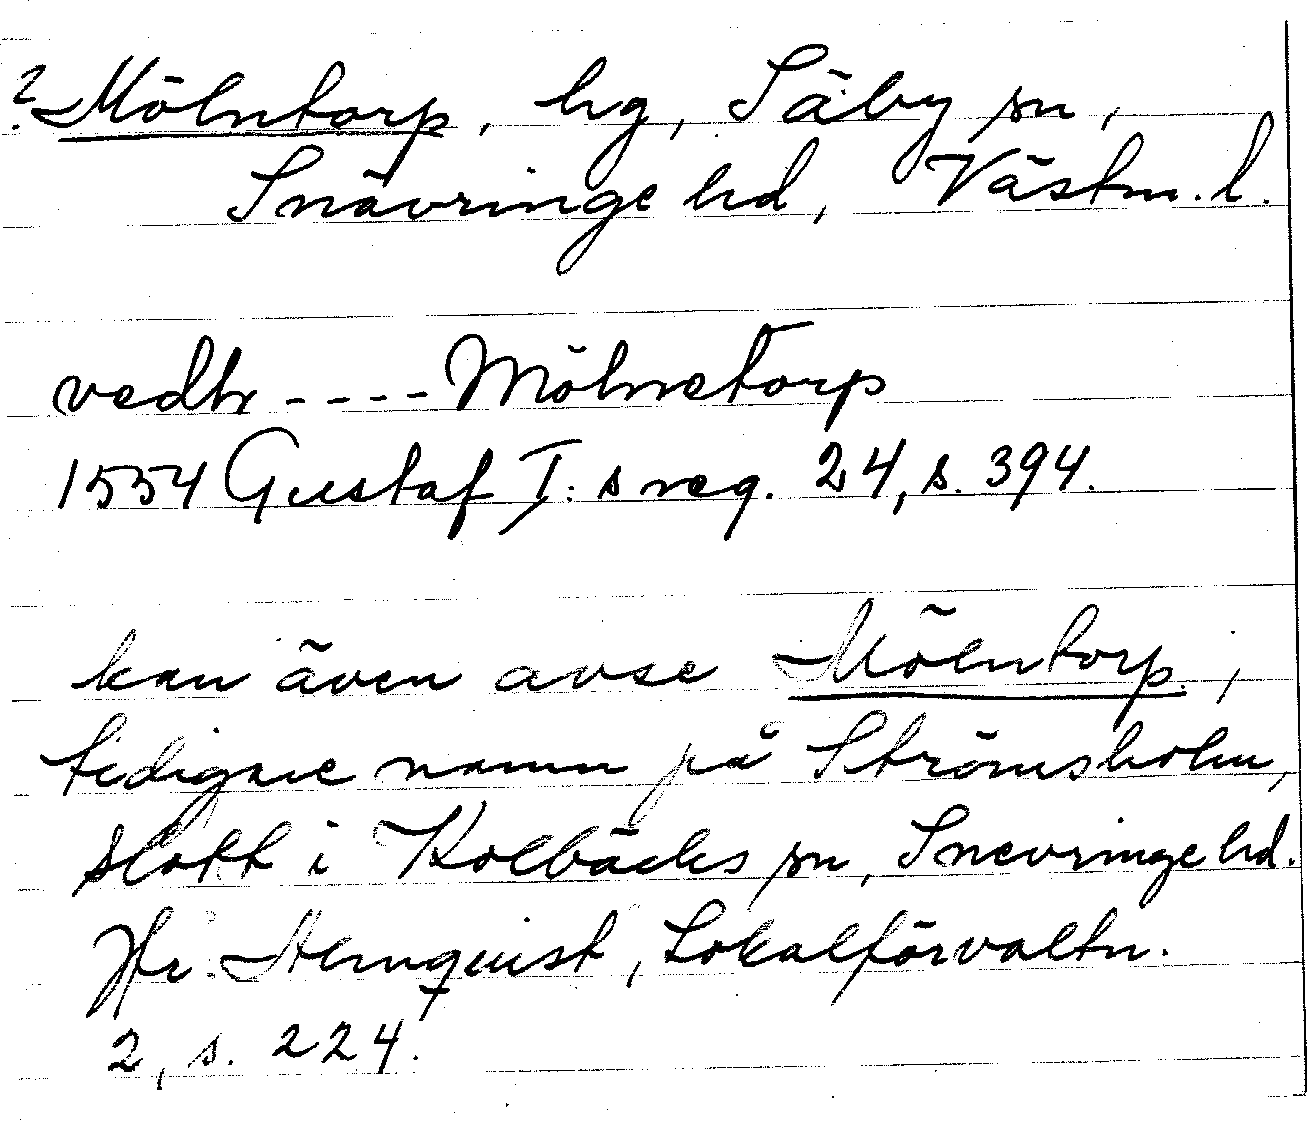 ? Mölntorp, hg, Säby sn,
Snävringe hd, Västm. l.
vedh ---- Mölnetorp
1554 Gustaf I: s reg. 24, s. 394.
kan även avse Mölntorp,
tidigare namn på Strömsholm,
slott i Kolbäcks sn, Snevringe hd.
Jfr Almquist, Lokalförvaltn.
2, s. 224.